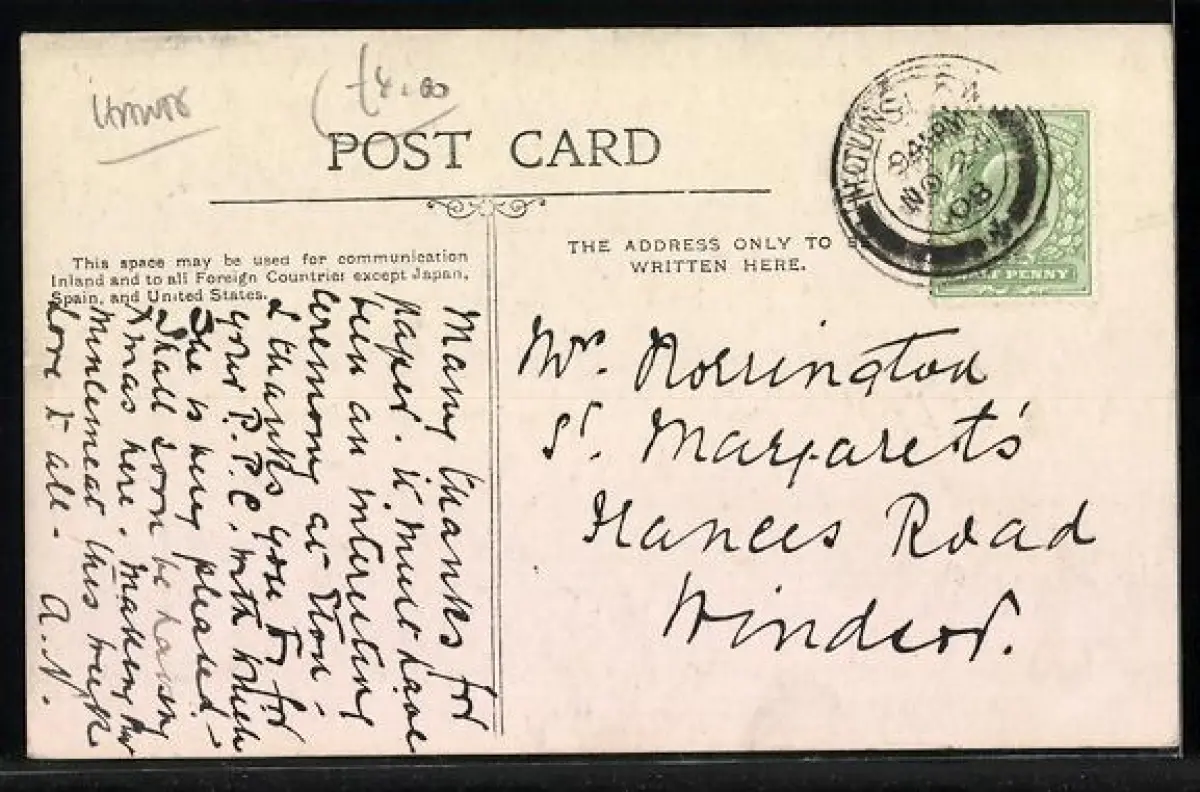 Humor
£4.00
POST CARD
This space may be used for communication
Inland and to all Foreign Countries except Japan,
Spain, and United States.
THE ADDRESS ONLY TO BE
WRITTEN HERE.
HOUNSLOW
NO
08
HALF PENNY
Many thanks for
paper. it must have
been an interesting
ceremony at Eton -
F. thanks you for
your P.P.C. with which
She is very pleased -
Shall soon be having
Xmas here. Making our
Mincemeat this week
Love to all - A.N.
Mrs. Norrington
St. Margaret's
Frances Road
Windsor.